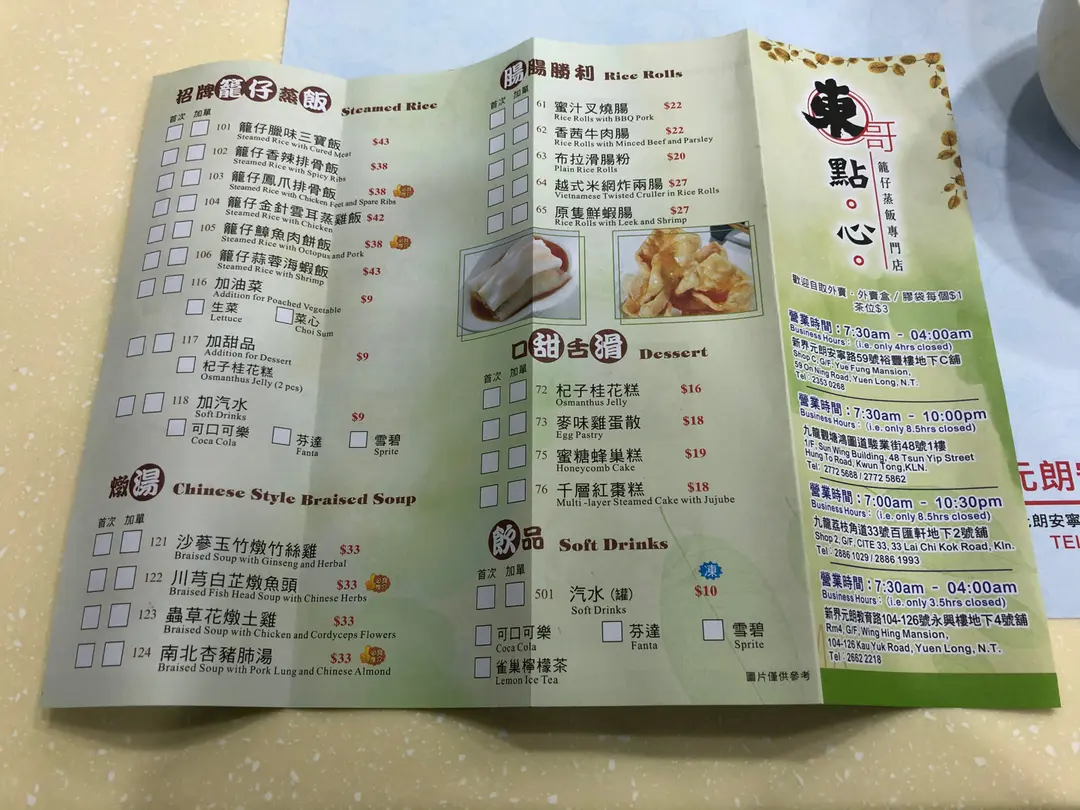 招牌籠仔蒸飯 Steamed Rice
首次 加單
101 籠仔臘味三寶飯 $43
Steamed Rice with Cured Meat
102 籠仔香辣排骨飯 $38
Steamed Rice with Spicy Ribs
103 籠仔鳳爪排骨飯 $38
Steamed Rice with Chicken Feet and Spare Ribs
104 籠仔金針雲耳蒸雞飯 $42
Steamed Rice with Chicken
105 籠仔鱆魚肉餅飯 $38
Steamed Rice with Octopus and Pork
106 籠仔蒜蓉海蝦飯 $43
Steamed Rice with Shrimp
116 加油菜 $9
Addition for Poached Vegetable
生菜 菜心
Lettuce Choi Sum
117 加甜品 $9
Addition for Dessert
杞子桂花糕
Osmanthus Jelly (2 pcs)
118 加汽水 $9
Soft Drinks
可口可樂 芬達 雪碧
Coca Cola Fanta Sprite
燉湯 Chinese Style Braised Soup
首次 加單
121 沙蔘玉竹燉竹絲雞 $33
Braised Soup with Ginseng and Herbal
122 川芎白芷燉魚頭 $33
Braised Fish Head Soup with Chinese Herbs
123 蟲草花燉土雞 $33
Braised Soup with Chicken and Cordyceps Flowers
124 南北杏豬肺湯 $33
Braised Soup with Pork Lung and Chinese Almond
腸腸勝利 Rice Rolls
首次 加單
61 蜜汁叉燒腸 $22
Rice Rolls with BBQ Pork
62 香茜牛肉腸 $22
Rice Rolls with Minced Beef and Parsley
63 布拉滑腸粉 $20
Plain Rice Rolls
64 越式米網炸兩腸 $27
Vietnamese Twisted Cruller in Rice Rolls
65 原隻鮮蝦腸 $27
Rice Rolls with Leek and Shrimp
口甜舌滑 Dessert
首次 加單
72 杞子桂花糕 $16
Osmanthus Jelly
73 麥味雞蛋散 $18
Egg Pastry
75 蜜糖蜂巢糕 $19
Honeycomb Cake
76 千層紅棗糕 $18
Multi-layer Steamed Cake with Jujube
飲品 Soft Drinks
首次 加單
凍
501 汽水 (罐) $10
Soft Drinks
可口可樂 芬達 雪碧
Coca Cola Fanta Sprite
雀巢檸檬茶
Lemon Ice Tea
圖片僅供參考
東哥
點。心。
籠仔蒸飯專門店
歡迎自取外賣．外賣盒 / 膠袋每個$1
茶位$3
營業時間：7:30am - 04:00am
Business Hours： (i.e. only 4hrs closed)
新界元朗安寧路59號裕豐樓地下C舖
Shop C, G/F, Yue Fung Mansion,
59 On Ning Road, Yuen Long, N.T.
Tel : 2353 0268
營業時間：7:30am - 10:00pm
Business Hours： (i.e. only 8.5hrs closed)
九龍觀塘鴻圖道駿業街48號1樓
1/F, Sun Wing Building, 48 Tsun Yip Street
Hung To Road, Kwun Tong,KLN.
Tel: 2772 5688 / 2772 5862
營業時間：7:00am - 10:30pm
Business Hours： (i.e. only 8.5hrs closed)
九龍荔枝角道33號百匯軒地下2號舖
Shop 2, G/F, CITE 33, 33 Lai Chi Kok Road, Kln.
Tel : 2886 1029 / 2886 1993
營業時間：7:30am - 04:00am
Business Hours： (i.e. only 3.5hrs closed)
新界元朗教育路104-126號永興樓地下4號舖
Rm4, G/F, Wing Hing Mansion,
104-126 Kau Yuk Road, Yuen Long, N.T.
Tel : 2662 2218
元朗
元朗安寧
TEL